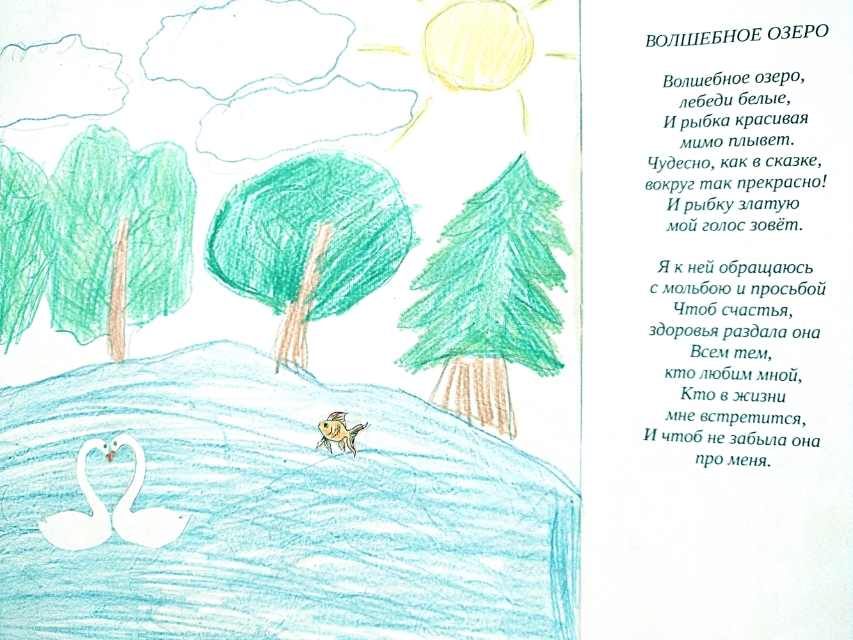 ВОЛШЕБНОЕ ОЗЕРО
Волшебное озеро,
лебеди белые,
И рыбка красивая
мимо плывет.
Чудесно, как в сказке,
вокруг так прекрасно!
И рыбку златую
мой голос зовёт.
Я к ней обращаюсь
с мольбою и просьбой
Чтоб счастья,
здоровья раздала она
Всем тем,
кто любим мной,
Кто в жизни
мне встретится,
И чтоб не забыла она
про меня.